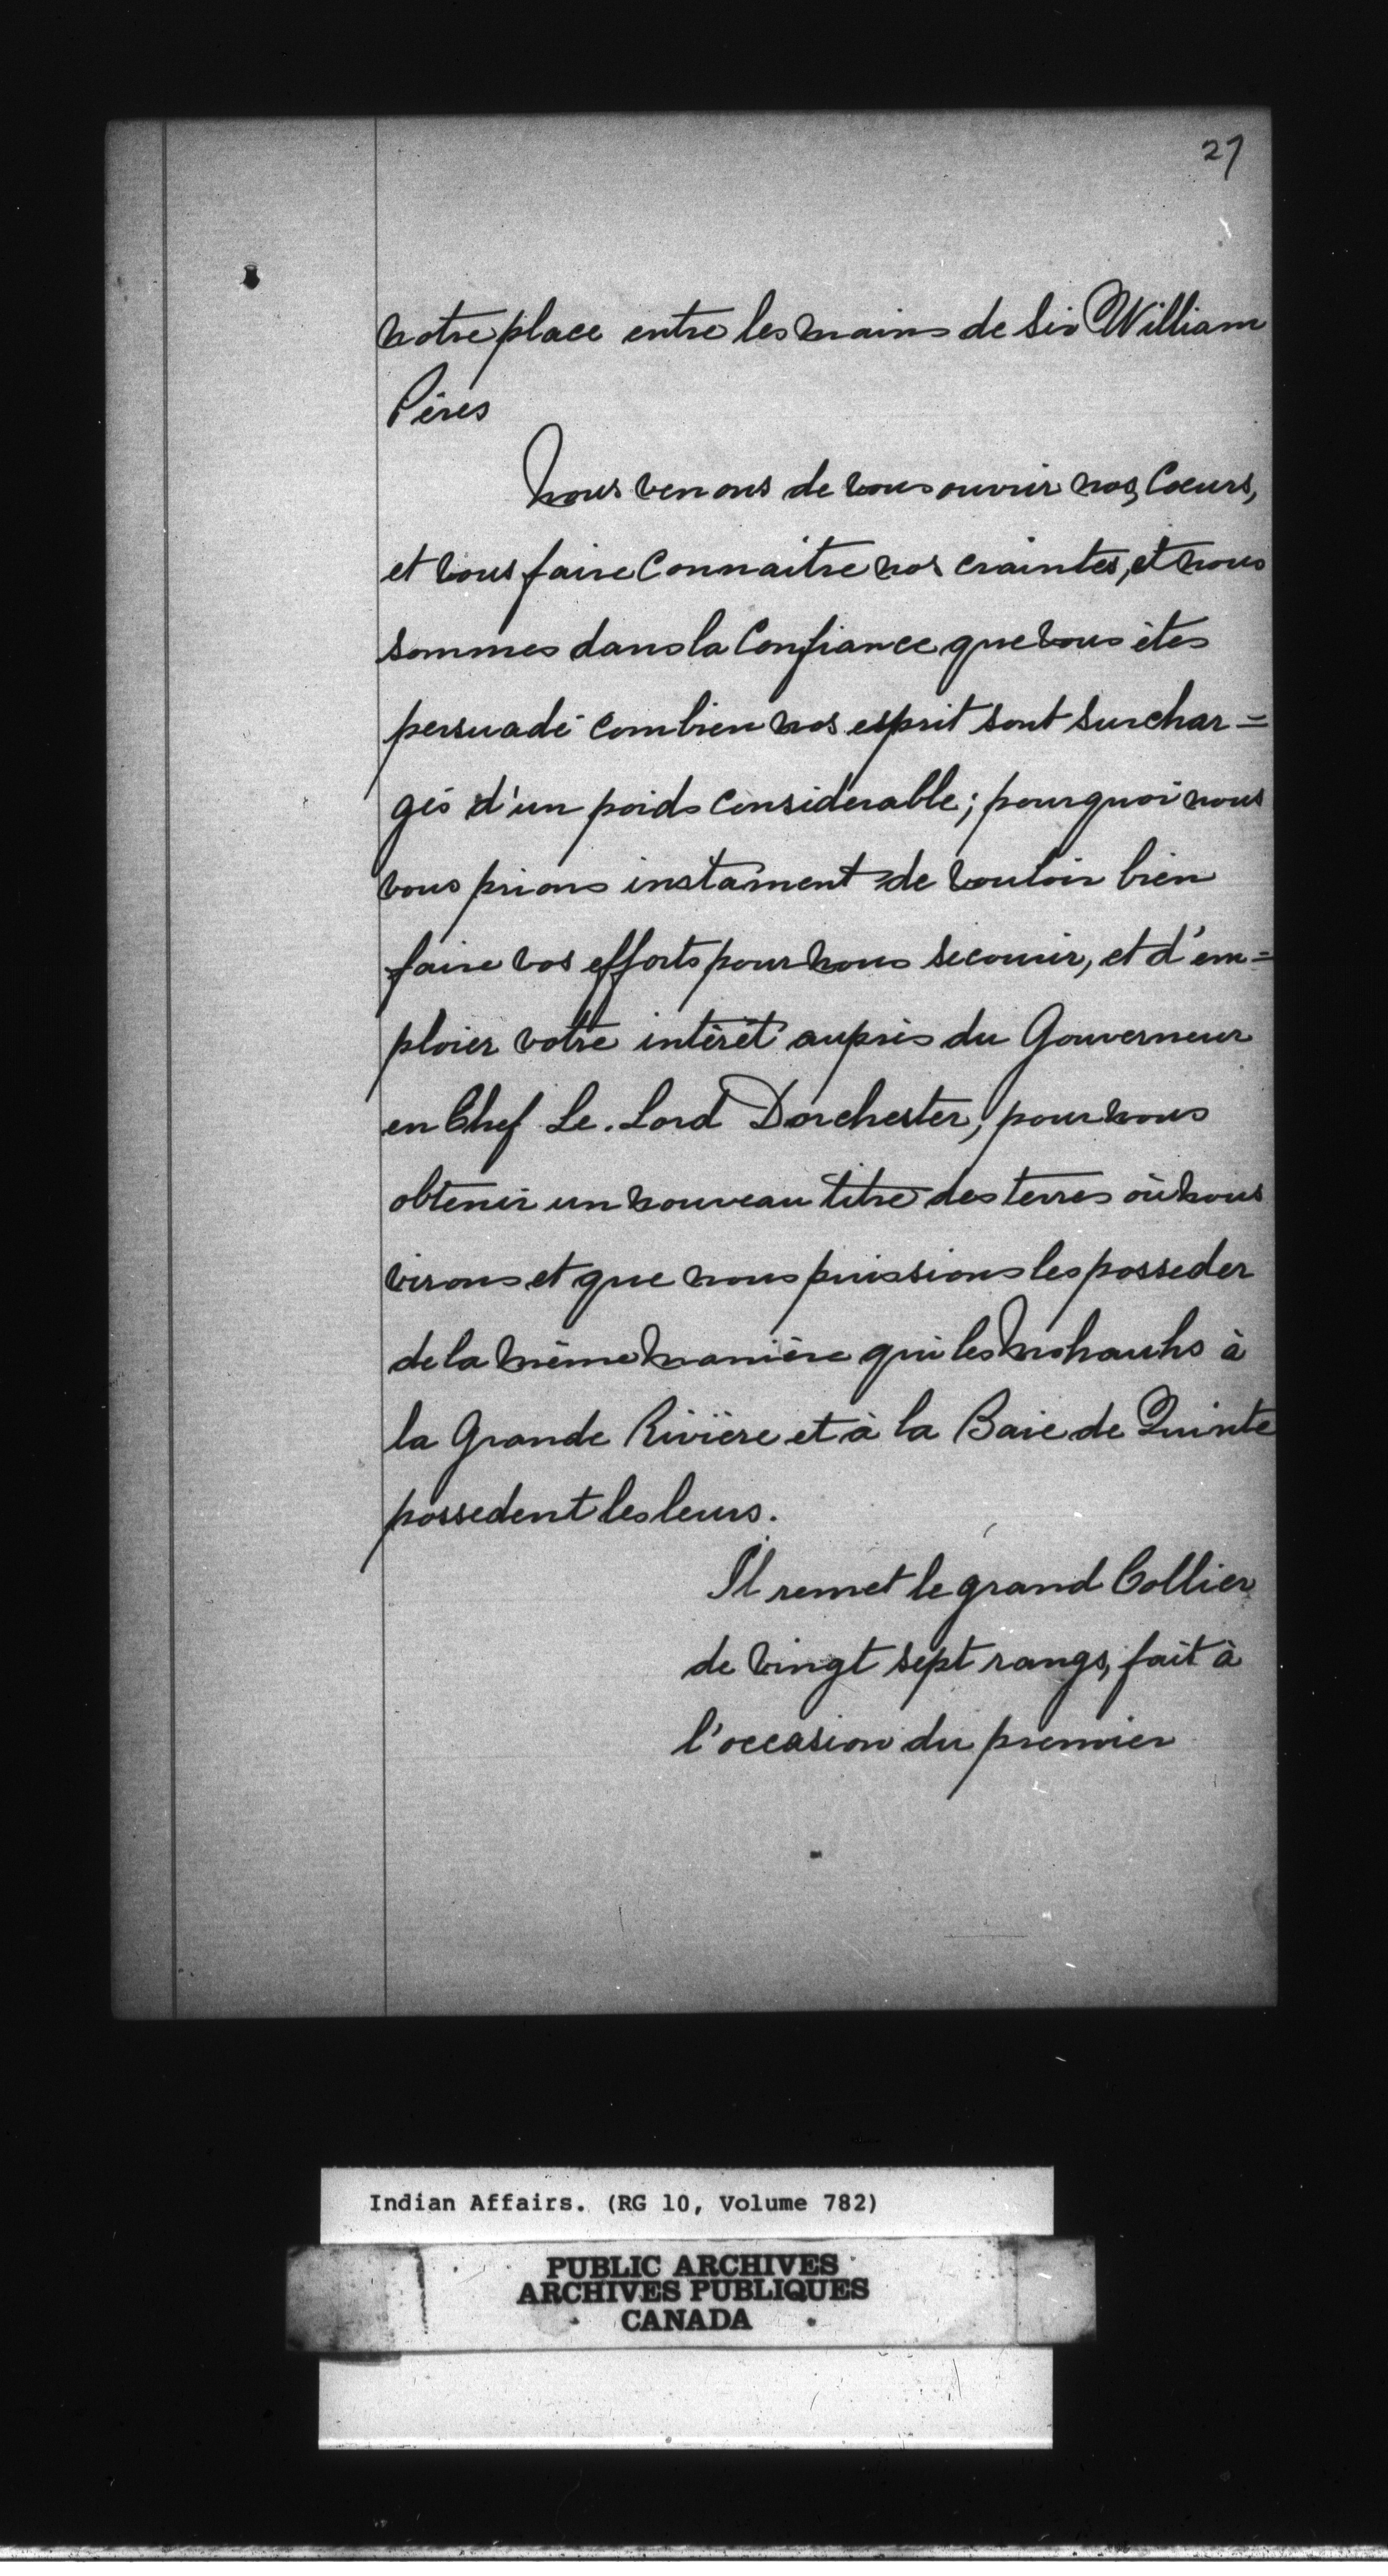 27
notre place entre les mains de Sir William
Péres
Nous venons de vous ouvrir nos Coeurs,
et vous faire Connaitre nos craintes, et nous
sommes dans la Confiance que vous êtes
persuadé combien nos esprit sont surchar=
gés d'un poids considerable; pourquoi nous
vous prions instament de vouloir bien
faire vos efforts pour nous secourir, et d'em=
ploier votre intérêt auprès du Gouverneur
en Chef Le. Lord Dorchester, pour nous
obtenir un nouveau titre des terres où nous
vivons et que nous puissions les posseder
de la même manière qui les Mohawks à
la Grande Rivière et à la Baie de Quinte
possedent les leurs.
Il remet le grand Collier
de vingt sept rangs, fait à
l'occasion du premier
Indian Affairs. (RG 10, Volume 782)
PUBLIC ARCHIVES
ARCHIVES PUBLIQUES
CANADA